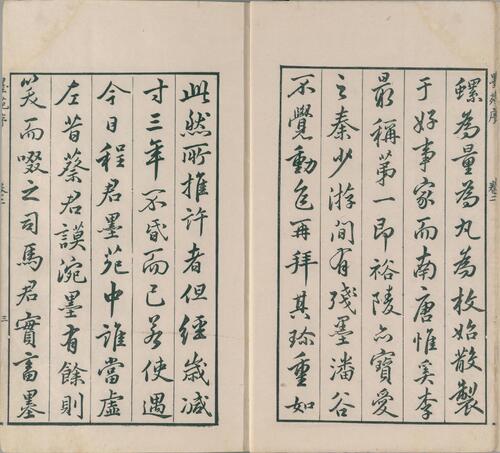 墨苑序 卷二
螺為量為丸為枚始散製
于好事家而南唐惟奚李
最稱第一即裕陵亦寶愛
之秦少游間有殘墨潘谷
不覺動色再拜其珍重如
此然所推許者但經歲減
寸三年不昏而已若使遇
今日程君墨苑中誰當虛
左昔蔡君謨涴墨有餘則
笑而啜之司馬君實畜墨
三